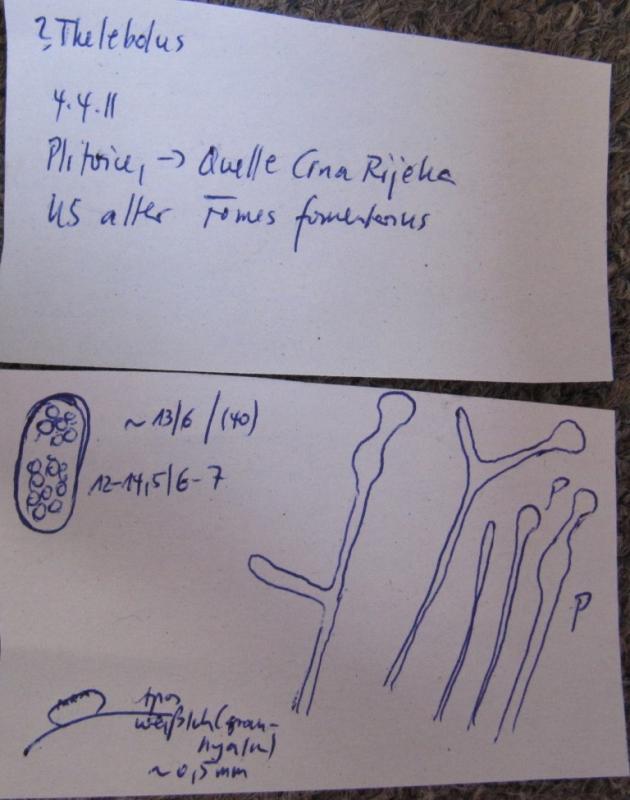 ? Thelebolus
4.4.11
Plitvice, → Quelle Crna Rijeka
US alter Fomes fomentarius
~ 13/6 / (40)
12-14,5/6-7
P
P
Apos
weißlich (grau-
hyalin)
~0,5mm